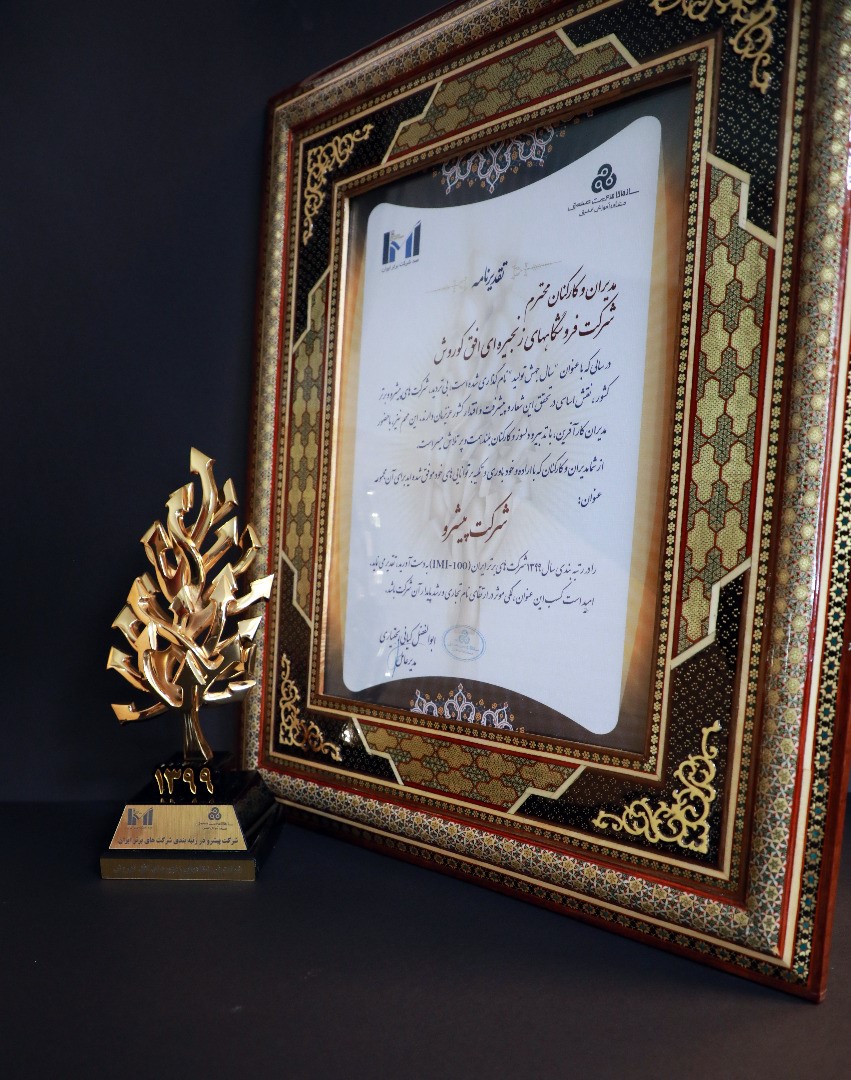 سازمان مدیریت صنعتی
مشاوره آموزش تحقیق
صد شرکت برتر ایران
تقدیرنامه
مدیران و کارکنان محترم
شرکت فروشگاههای زنجیره ای افق کوروش
در سالی که با عنوان "سال جهش تولید" نام گذاری شده است، بی تردید، شرکت های پیشرو و برتر
کشور، نقش اساسی در تحقق این شعار و پیشرفت و اقتدار کشور عزیزمان دارند. این مهم نیز، با حضور
مدیران کارآفرین، با تدبیر و دلسوز و کارکنان بلندهمت و پرتلاش میسر است.
از شما مدیران و کارکنان که با اراده و خودباوری و تکیه بر توانایی های خود موفق شده اید برای آن مجموعه
عنوان:
شرکت پیشرو
را در رتبه بندی سال ۱۳۹۹ شرکت های برتر ایران (IMI-100) به دست آورید، تقدیر می نماید.
امید است کسب این عنوان، کمکی موثر در ارتقای نام تجاری و رشد پایدار آن شرکت باشد.
ابوالفضل کیانی بختیاری
مدیرعامل
۱۳۹۹
شرکت پیشرو در رتبه بندی شرکت های برتر ایران